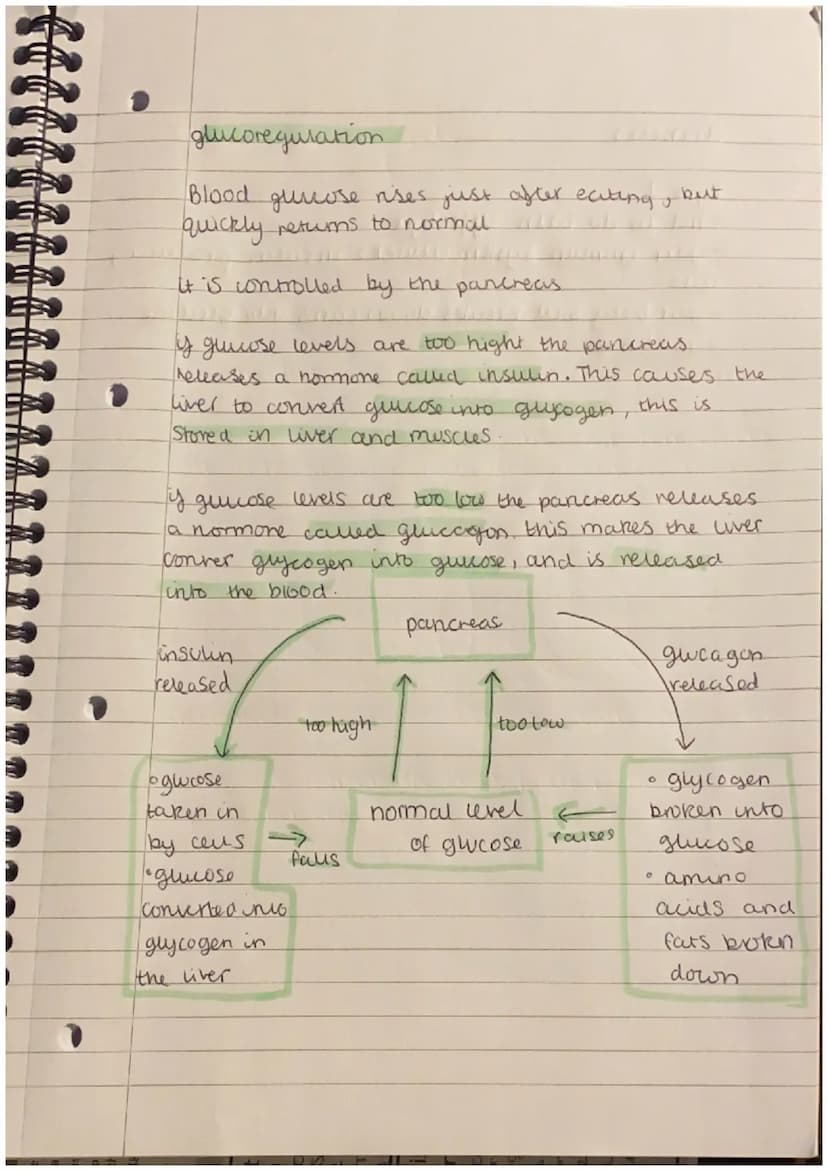 glucoregulation
Blood glucose rises just after eating, but
quickly returns to normal
it is controlled by the pancreas
if glucose levels are too hight the pancreas
releases a hormone called insulin. This causes the
liver to convert glucose into glycogen, this is
stored in liver and muscles.
if glucose levels are too low the pancreas releases
a hormone called gluccagon. this makes the liver
conver glycogen into glucose, and is released
into the blood.
pancreas
insulin
released
glucagon
released
too high
too low
• glucose
taken in
by cells
• glucose
converted into
glycogen in
the liver
falls
normal level
of glucose
raises
• glycogen
broken into
glucose
• amino
acids and
fats brokn
down